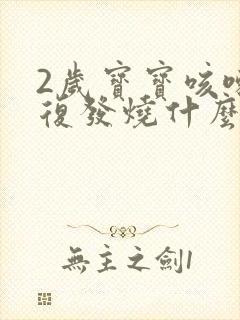 2歲寶寶咳
復發燒什麼
無主之劍1